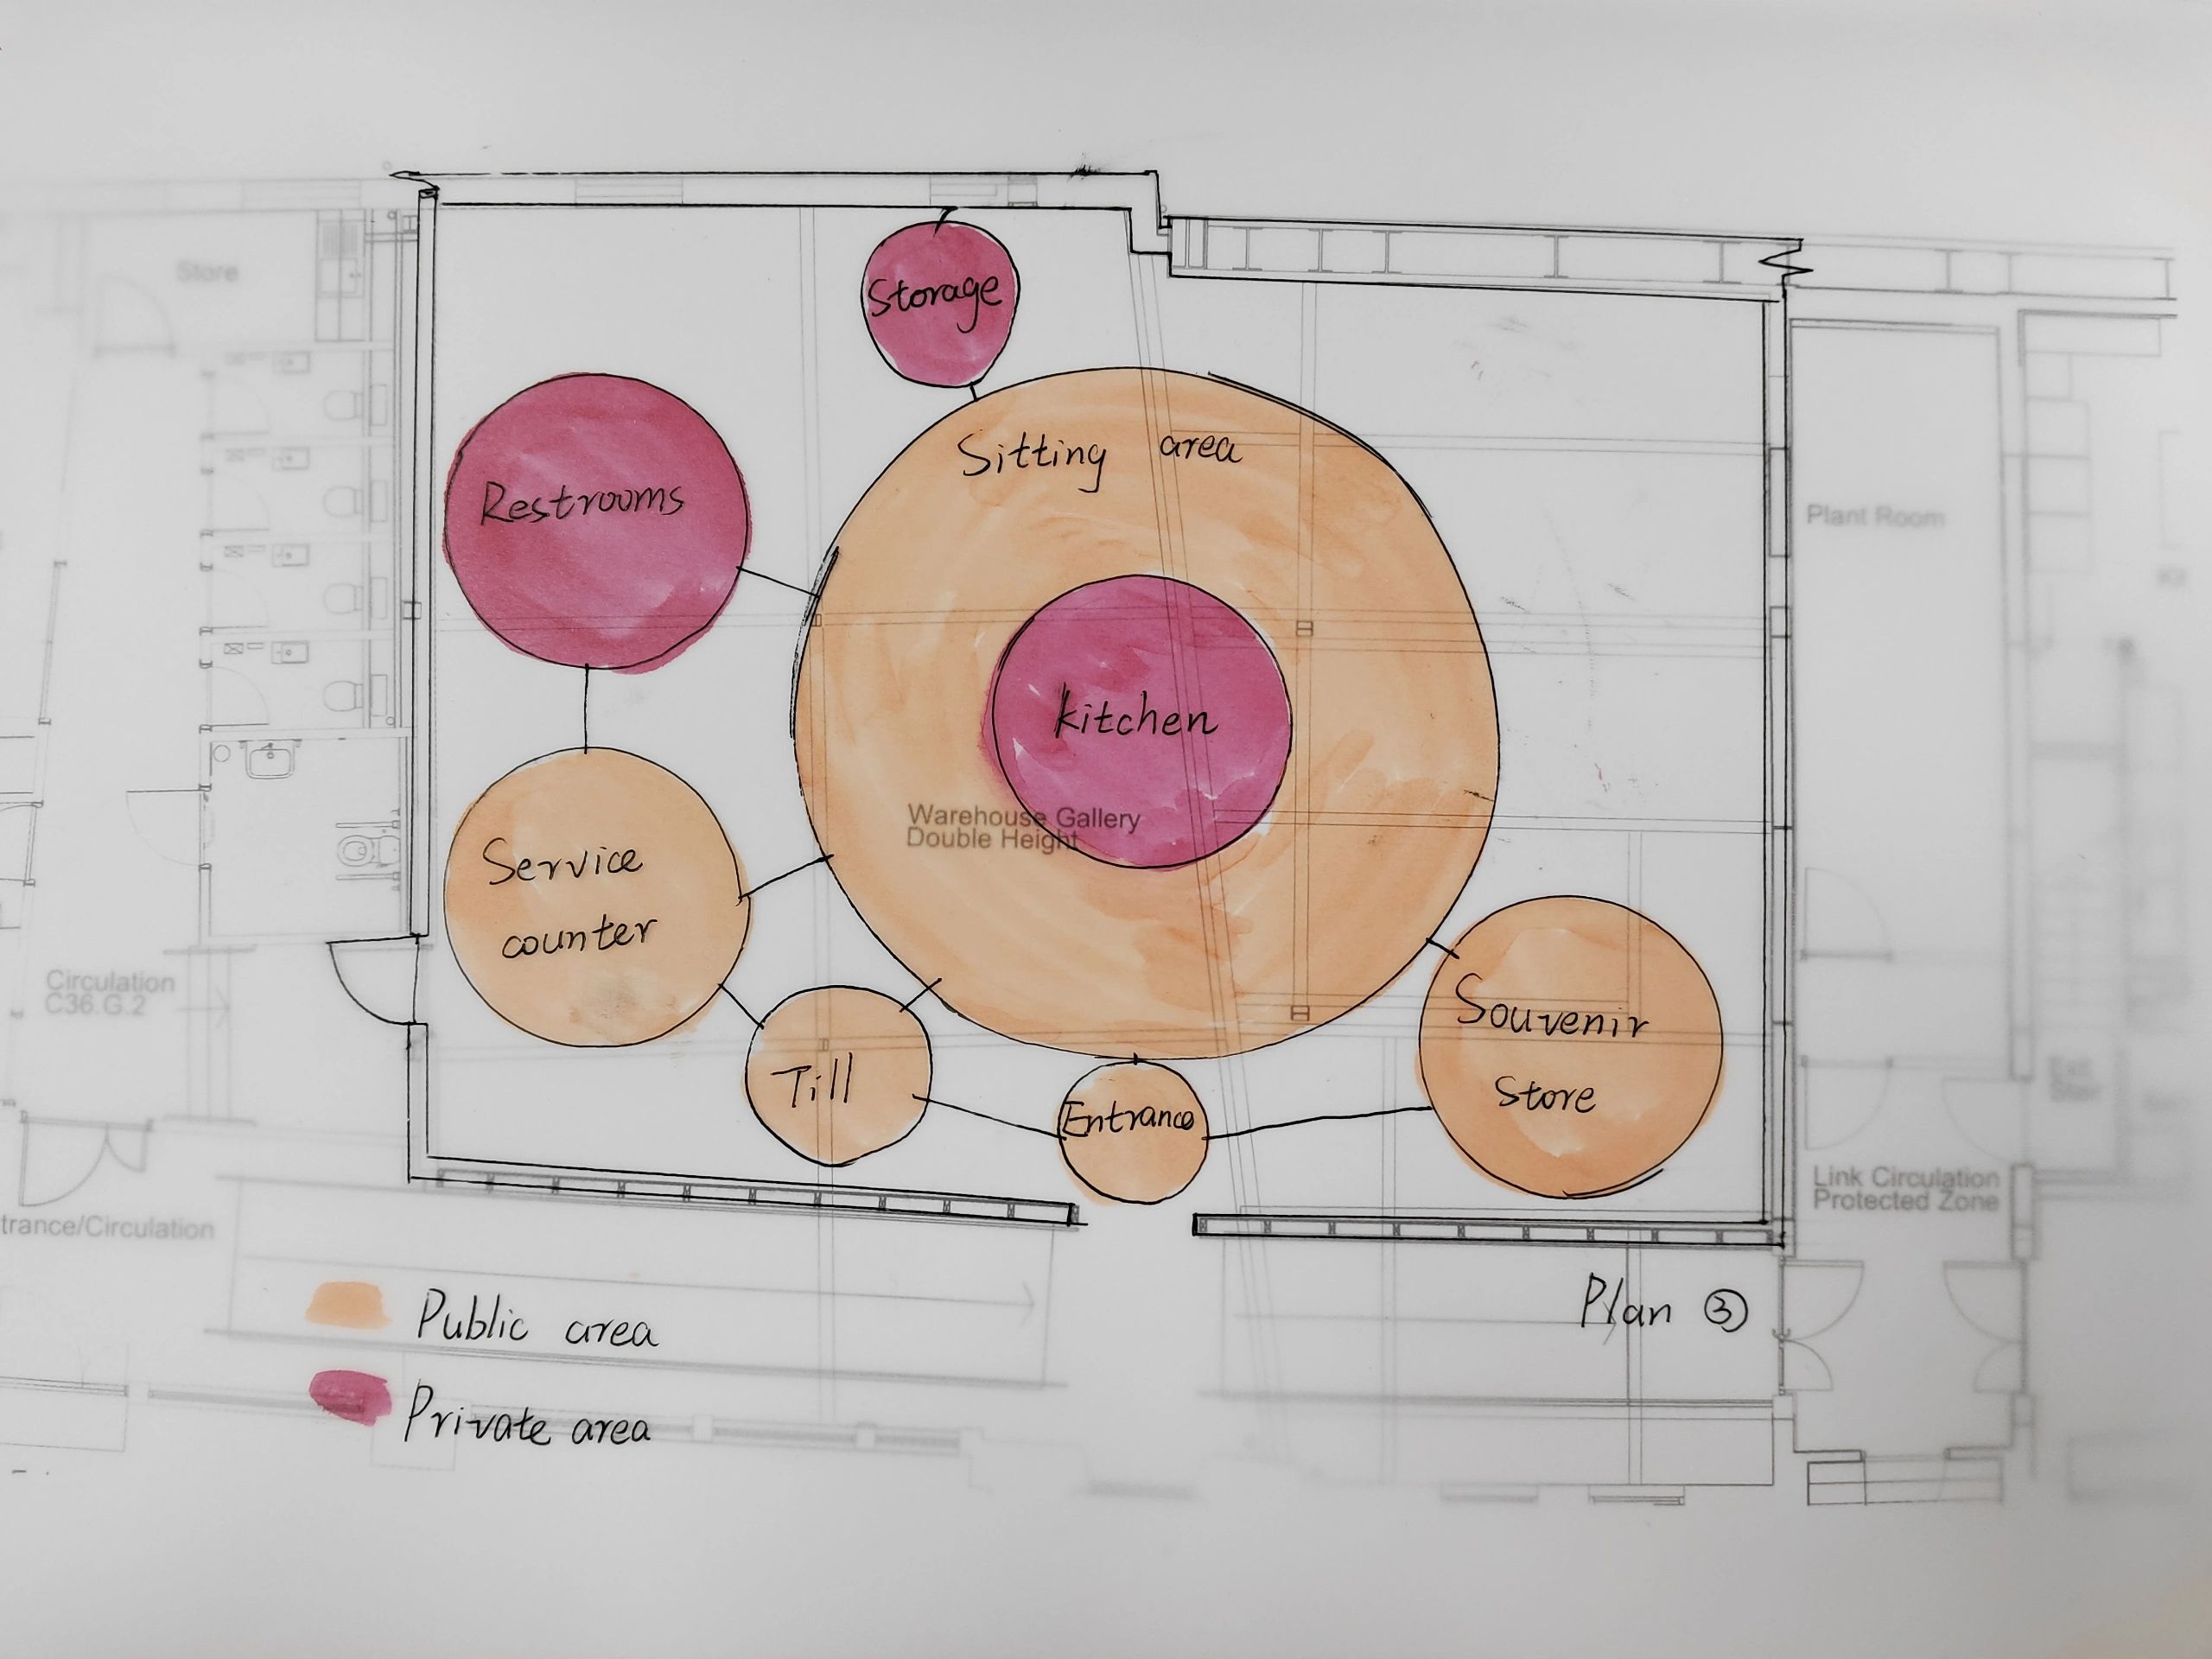 Store
Storage
Sitting area
Restrooms
Plant Room
kitchen
Warehouse Gallery
Double Height
Service
counter
Circulation
C36.G.2
Souvenir
store
Till
Entrance
Link Circulation
Protected Zone
trance/Circulation
Public area
Plan ③
Private area